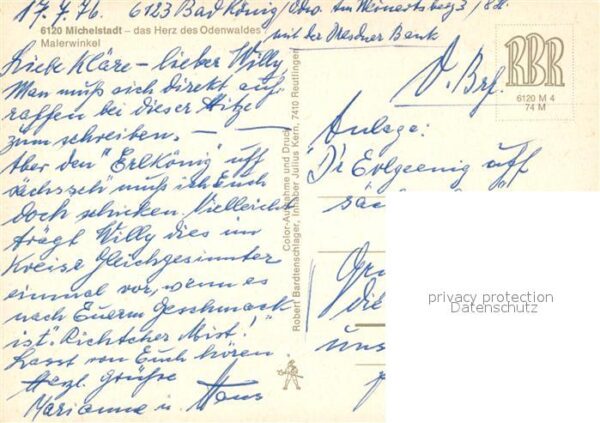 17.7.76. 6123 Bad König/Odw. Am Weinertsberg 3/8
6120 Michelstadt – das Herz des Odenwaldes
Malerwinkel
mit der Dresdner Bank
Liebe Kläre – lieber Willy
Man muß sich direkt auf-
raffen bei dieser Hitze
zum schreiben. —
Aber den "Erlkönig" uff
sächs'sch muß ich Euch
doch schicken. Vielleicht
trägt Willy dies im
Kreise Gleichgesinnter
einmal vor, wenn es
nach Eurem Geschmack
ist. "Richtcher Mist!"
Lasst von Euch hören
Herzl. Grüße
Marianne u. Hans
Color-Aufnahme und Druck:
Robert Bardtenschlager, Inhaber Julius Kern, 7410 Reutlingen
RBR
6120 M 4
74 M
D. Brf.
Anlage:
"D'r Erlgeenig uff
die
uns
privacy protection
Datenschutz